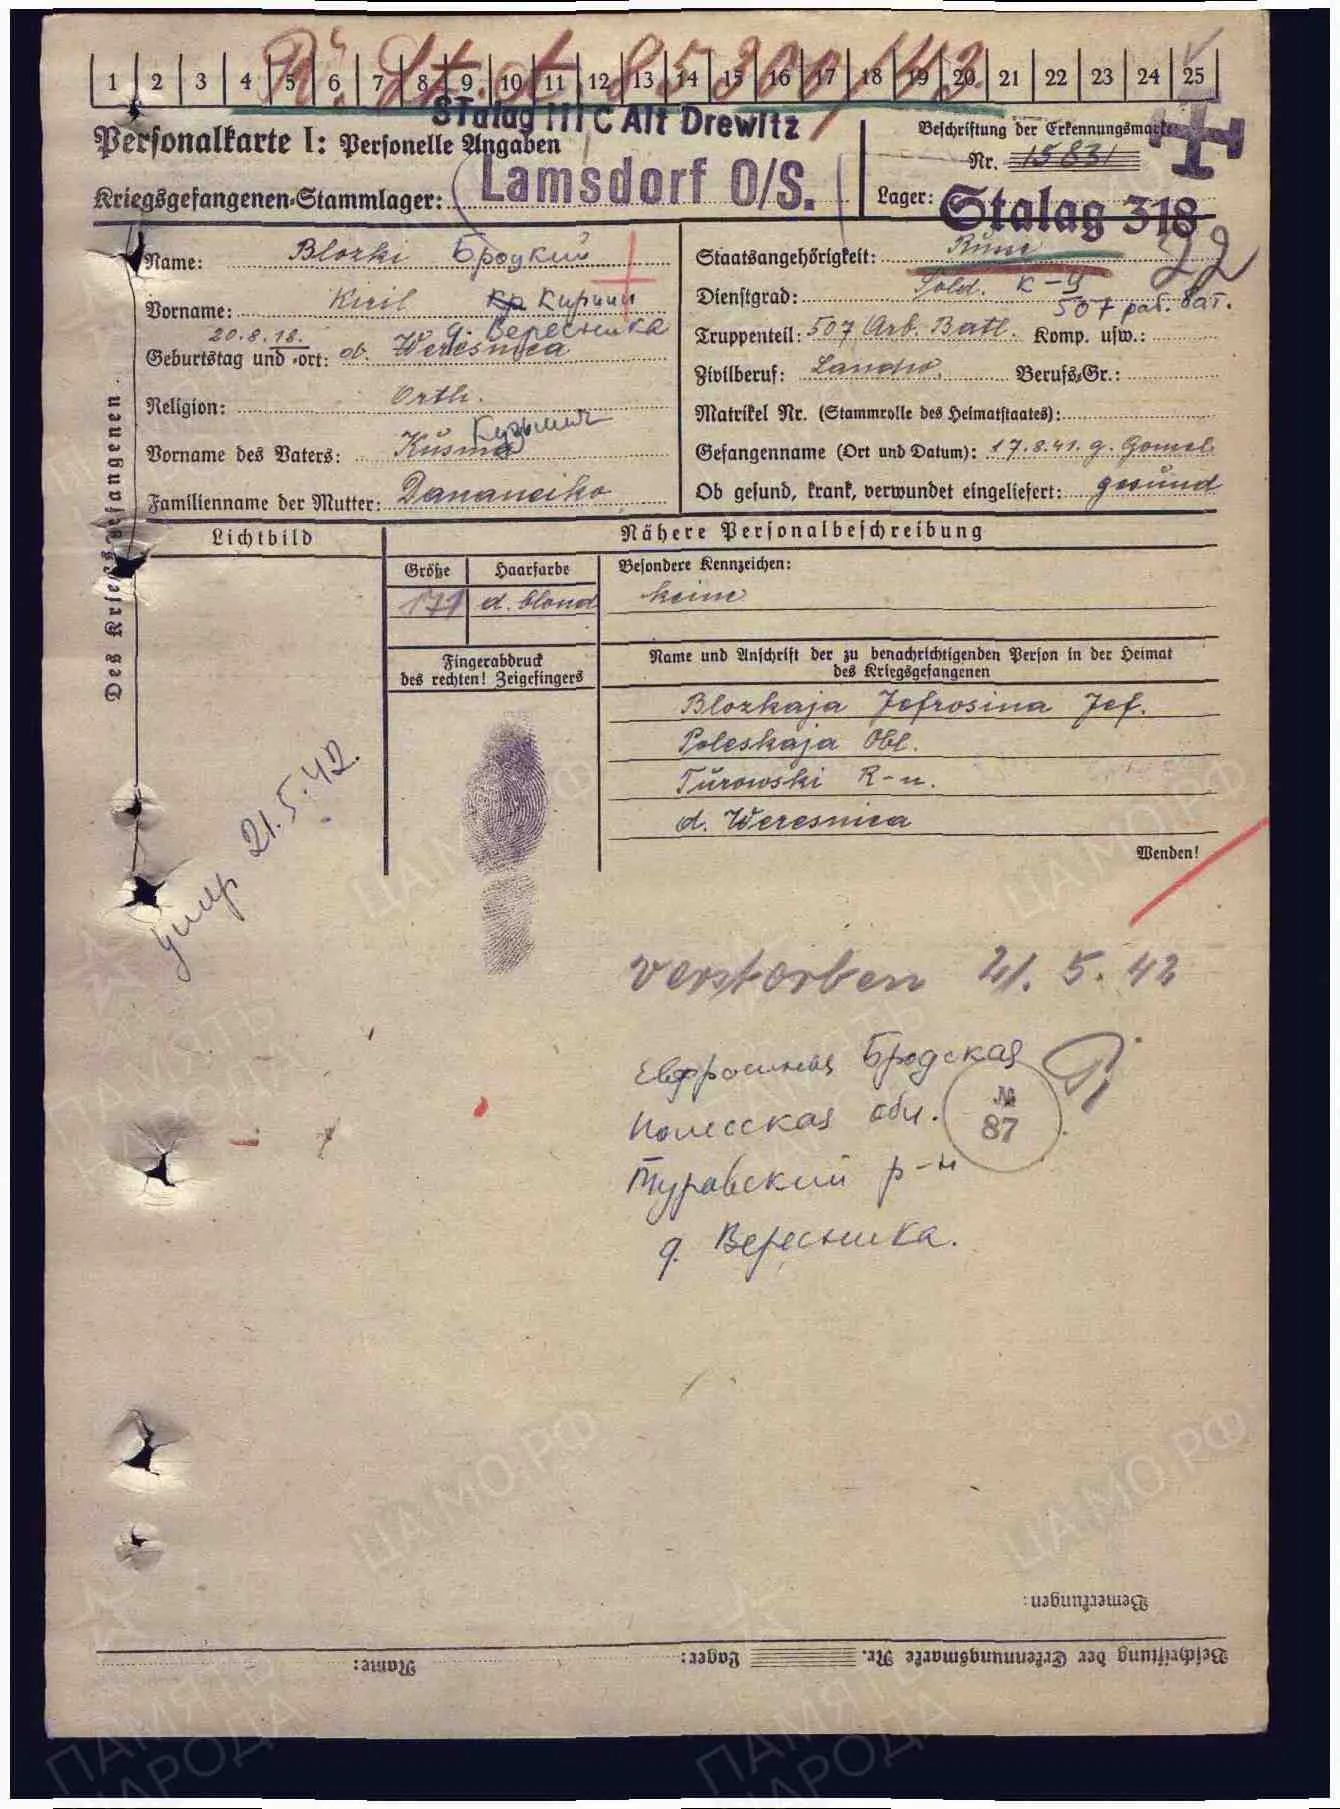 1 2 3 4 5 6 7 8 9 10 11 12 13 14 15 16 17 18 19 20 21 22 23 24 25
Stalag III C Alt Drewitz
Personalkarte I: Personelle Angaben
Beschriftung der Erkennungsmarke
Nr. 15831
Kriegsgefangenen-Stammlager: Lamsdorf O/S.
Lager: Stalag 318
22
Des Kriegsgefangenen
Name: Blozki Бродкий
Vorname: Kiril Кр Кирилл
д. Вересника
Geburtstag und -ort: 20.8.18. d. Weresnica
Religion: Orth.
Кузьмич
Vorname des Vaters: Küsma
Familienname der Mutter: Dananeiko
Staatsangehörigkeit: Russe
Dienstgrad: Sold. к-ц
507 раб. бат.
Truppenteil: 507 Arb. Batl. Komp. usw.:
Zivilberuf: Landw. Berufs-Gr.:
Matrikel Nr. (Stammrolle des Heimatstaates):
Gefangenname (Ort und Datum): 17.8.41. g. Gomel
Ob gesund, krank, verwundet eingeliefert: gesund
Lichtbild
Nähere Personalbeschreibung
Größe
Haarfarbe
Besondere Kennzeichen:
171
d. blond
keine
Fingerabdruck
des rechten! Zeigefingers
Name und Anschrift der zu benachrichtigenden Person in der Heimat
des Kriegsgefangenen
Blozkaja Jefrosina Jef.
Poleskaja Obl.
Türowski R-n.
d. Weresnica
Wenden!
умер 21.5.42.
verstorben 21.5.42
Евфросинья Бродская
Полесская обл.
№
87
Туравский р-н
д. Вересника.
Bemerkungen:
Beschriftung der Erkennungsmarke Nr. Lager: Name:
ЦАМО.РФ
ПАМЯТЬ
НАРОДА